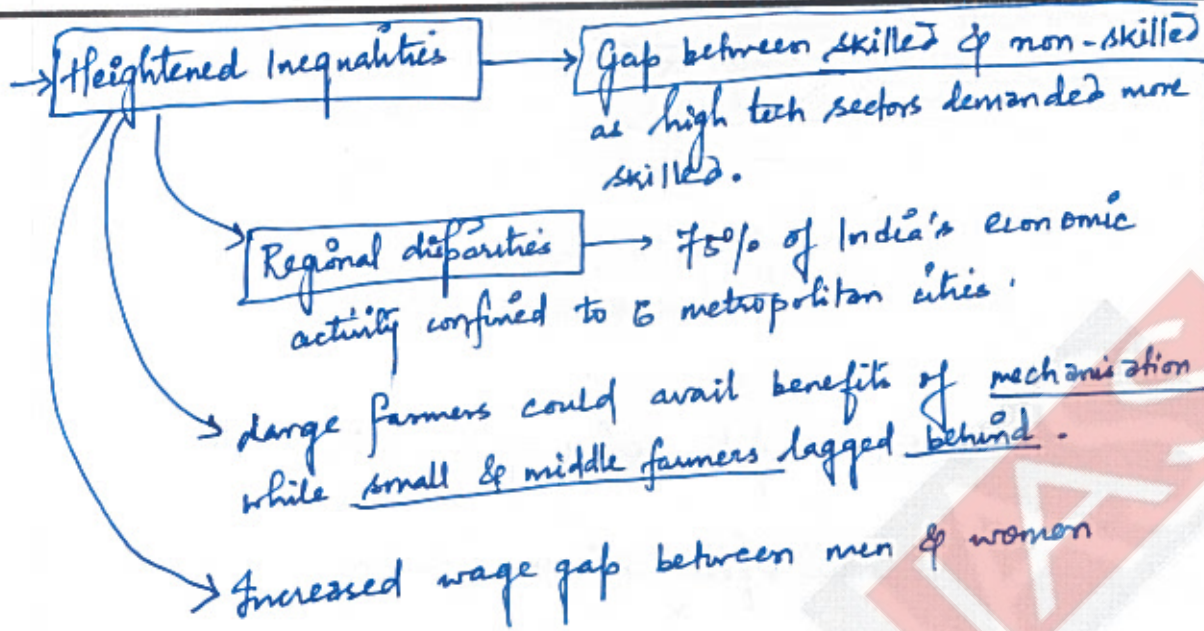 → Heightened Inequalities → Gap between skilled & non-skilled
as high tech sectors demanded more
skilled.
Regional disparities → 75% of India's economic
activity confined to 5 metropolitan cities.
Large farmers could avail benefits of mechanisation
while small & middle farmers lagged behind.
Increased wage gap between men & women
IAS